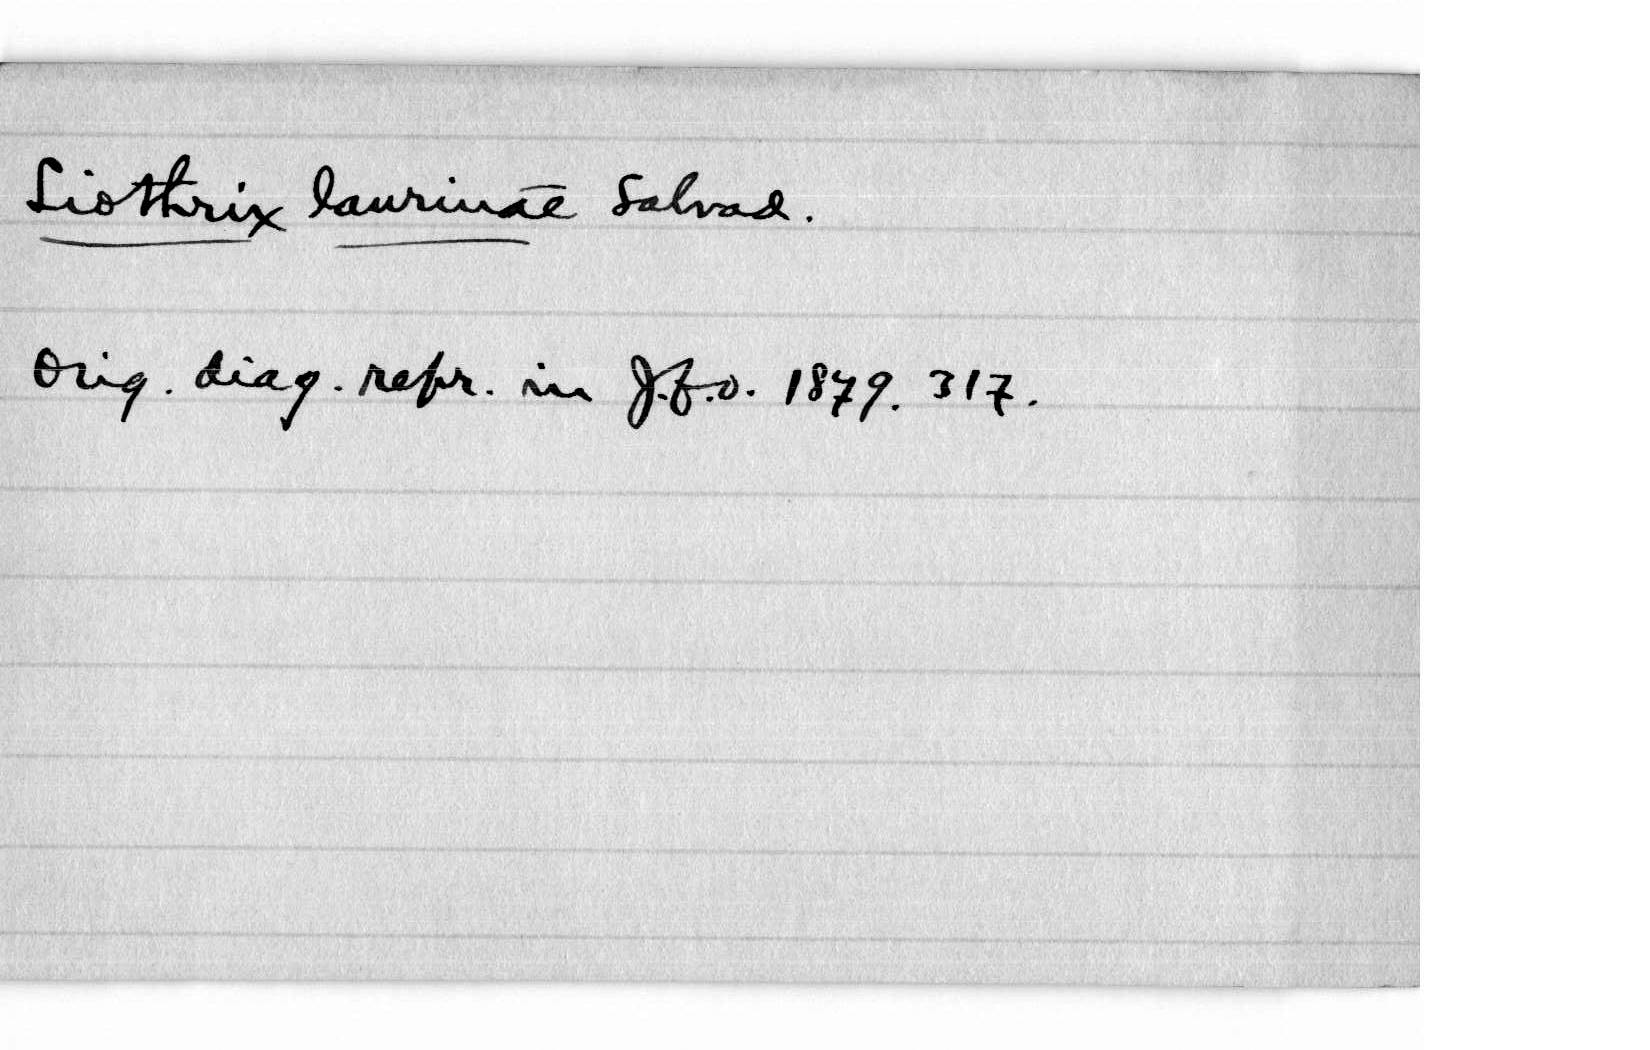 Liothrix laurinae Salvad.
Orig. diag. repr. in J.f.O. 1879. 317.